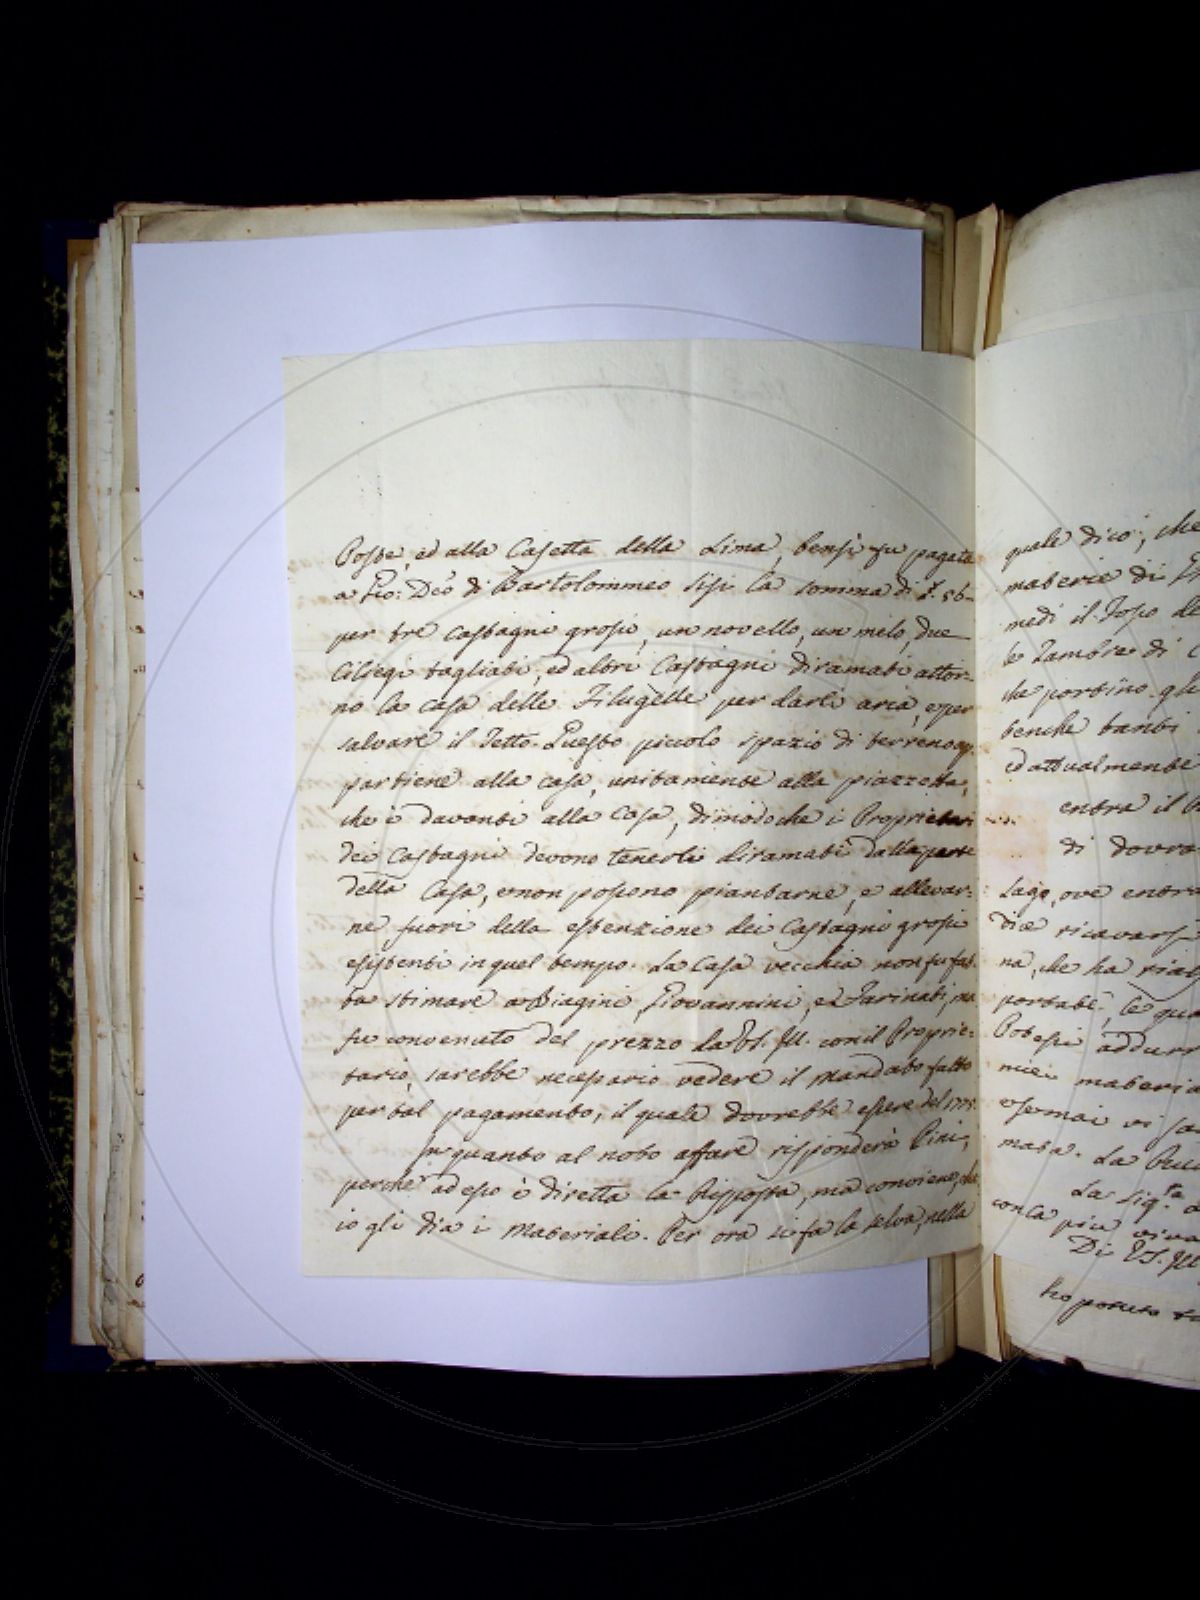 Poste, ed alla Casetta della Lima, bensi fu pagata
a Gio: Dco di Bartolommeo Sisi la somma di £. 56-
per tre castagni grossi, un novello, un melo, due
Ciliegi tagliati, ed altri Castagni diramati attor-
no la casa delle Filugelle per darli aria, e per
salvare il Tetto. Questo piccolo spazio di terreno ap-
partiene alla casa, unitamente alla piazzetta,
che è davanti alla Casa, dimodoche i Proprietari
dei Castagni devono tenerli diramati dalla parte
della Casa, e non possono piantarne, e allevar-
ne fuori della estenzione dei Castagni grossi
esistenti in quel tempo. La Casa vecchia non fu fat-
ta stimare a Biagini, Giovannini, e Farinati, ma
fu convenuto del prezzo da VS. Ill. con il Proprie-
tario, sarebbe necessario vedere il Mandato fatto
per tal pagamento, il quale dovrebbe essere del
In quanto al noto affare risponderà Pini,
perche adesso è diretta la Risposta, ma conviene, che
io gli dia i Materiali. Per ora si fa la selva, nella
quale dico, che
materie di
medi il
le Zambre di
che portino gli
benche tanti
ed attualmente
entra il
di dovra
Lago, ove entra
ricavarsi
na, che ha
portate, le qua
Potessi addurr
miei materia
vi sa
mata. La
La Sigra
con la piu viva
Di VS. Ill
ho potuto